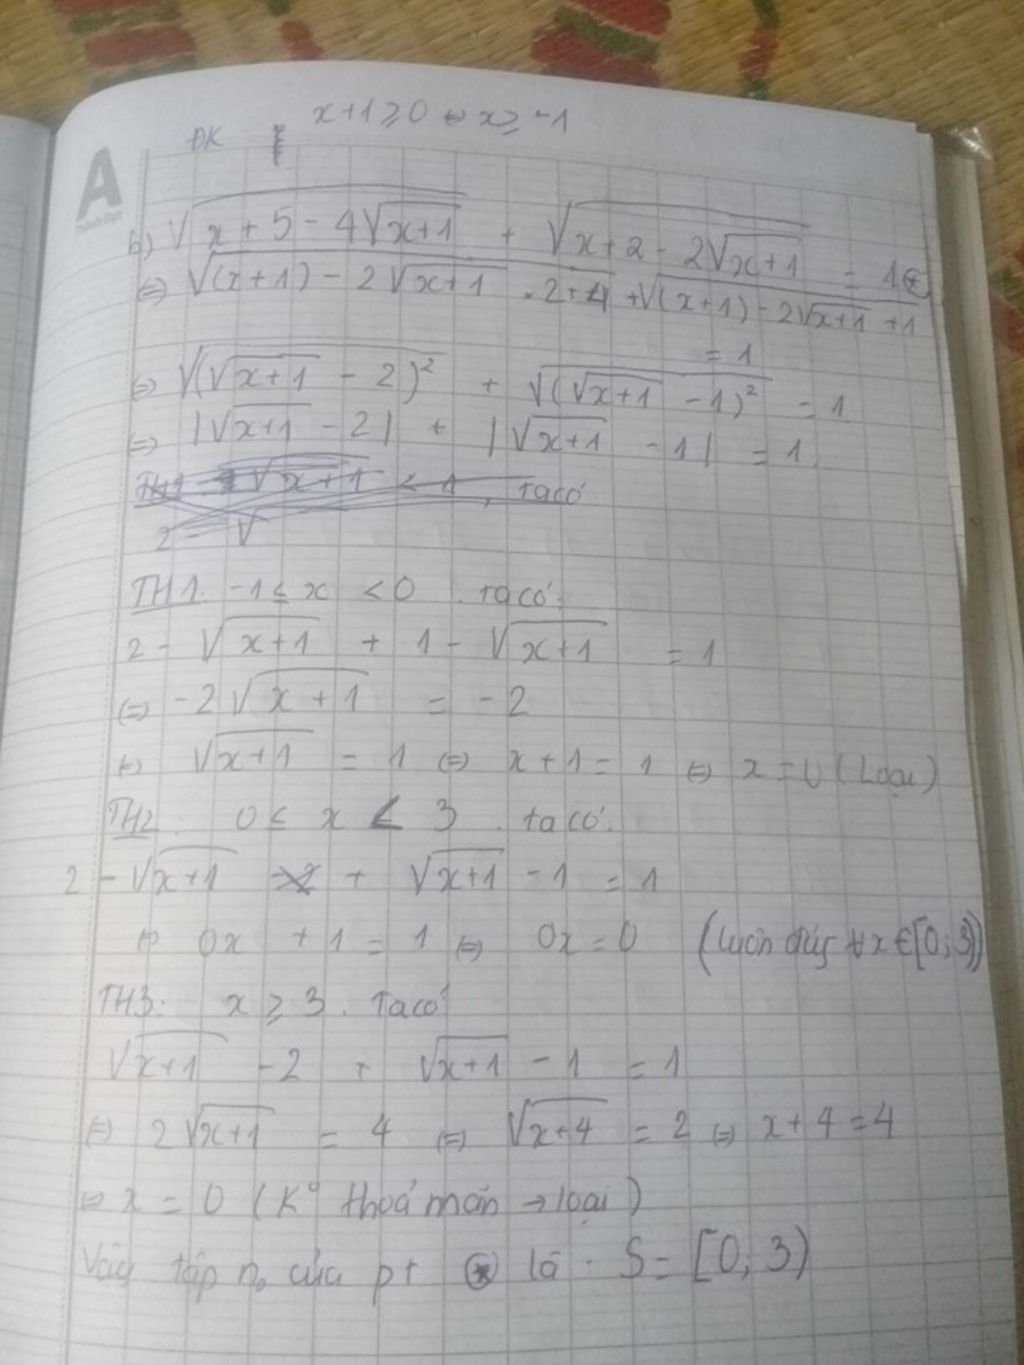 x+1≥0 ⇔ x≥-1
ĐK
A
b) √(x+5-4√(x+1)) + √(x+2-2√(x+1)) = 1 (*)
⇔ √((x+1)-2√(x+1).2+4) + √((x+1)-2√(x+1)+1)
= 1
⇔ √((√(x+1)-2)²) + √((√(x+1)-1)²) = 1
⇔ |√(x+1)-2| + |√(x+1)-1| = 1
√(x+1) < 1, Ta có
2 - √
TH1. -1≤x<0. Ta có:
2-√(x+1) + 1-√(x+1) = 1
⇔ -2√(x+1) = -2
⇔ √(x+1) = 1 ⇔ x+1=1 ⇔ x=0 (Loại)
TH2. 0≤x<3. ta có:
2-√(x+1) + √(x+1)-1 = 1
⇔ 0x+1=1 ⇔ 0x=0 (luôn đúng ∀x∈[0;3))
TH3: x≥3. Ta có
√(x+1)-2 + √(x+1)-1 = 1
⇔ 2√(x+1) = 4 ⇔ √(x+4) = 2 ⇔ x+4=4
⇔ x=0 (K° thoả mãn → loại)
Vậy tập n₀ của pt (*) là: S=[0;3)